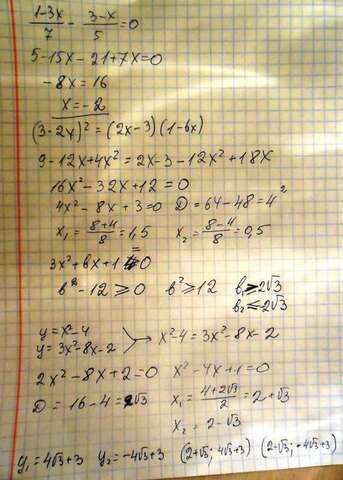 (1-3x)/7 - (3-x)/5 = 0
5-15x-21+7x=0
-8x=16
x=-2
(3-2x)² = (2x-3)(1-6x)
9-12x+4x² = 2x-3-12x²+18x
16x²-32x+12=0
4x²-8x+3=0 D=64-48=4²
x₁=(8+4)/8=1,5 x₂=(8-4)/8=0,5
3x²+bx+1=0
b²-12≥0 b²≥12 b₁≥2√3
b₂≤-2√3
y=x²-4
y=3x²-8x-2 → x²-4=3x²-8x-2
2x²-8x+2=0 x²-4x+1=0
D=16-4=2√3 x₁=(4+2√3)/2=2+√3
x₂=2-√3
y₁=4√3+3 y₂=-4√3+3 (2+√3; 4√3+3) (2-√3; -4√3+3)